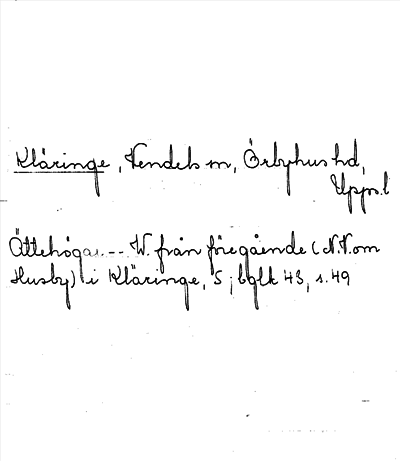 Kläringe, Vendels sn, Örbyhus hd,
Upps.l
Ättehögar --- W. från föregående (N.V. om
Husby) i Kläringe, S; bglk 43, s. 49